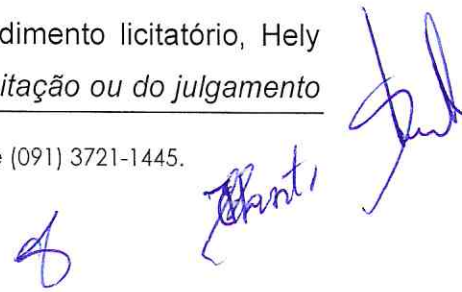 dimento licitatório, Hely
itação ou do julgamento
e (091) 3721-1445.